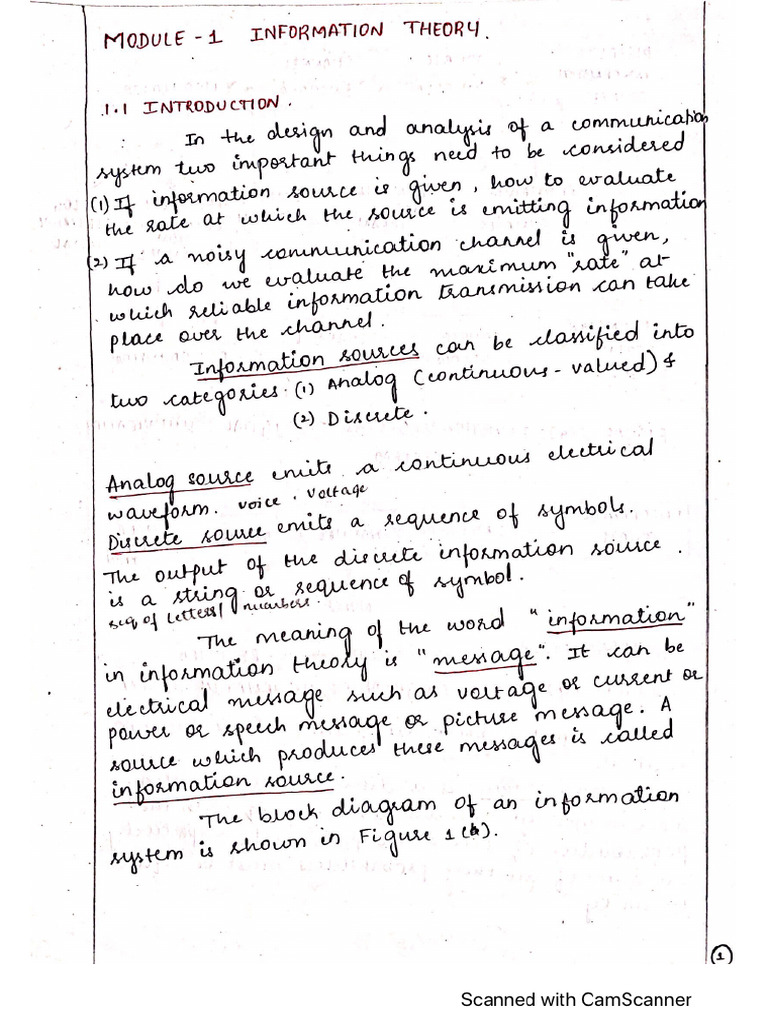 MODULE - 1 INFORMATION THEORY.
1.1 INTRODUCTION.
In the design and analysis of a communication
system two important things need to be considered
(1) If information source is given, how to evaluate
the rate at which the source is emitting information
(2) If a noisy communication channel is given,
how do we evaluate the maximum "rate" at
which reliable information transmission can take
place over the channel.
Information sources can be classified into
two categories. (1) Analog (continuous - valued) &
(2) Discrete.
Analog source emits a continuous electrical
waveform. voice, voltage
Discrete source emits a sequence of symbols.
The output of the discrete information source.
is a string or sequence of symbol.
seq of letters/ numbers.
The meaning of the word "information"
in information theory is "message". It can be
electrical message such as voltage or current or
power or speech message or picture message. A
source which produces these messages is called
information source.
The block diagram of an information
system is shown in Figure 1(a).
1
Scanned with CamScanner